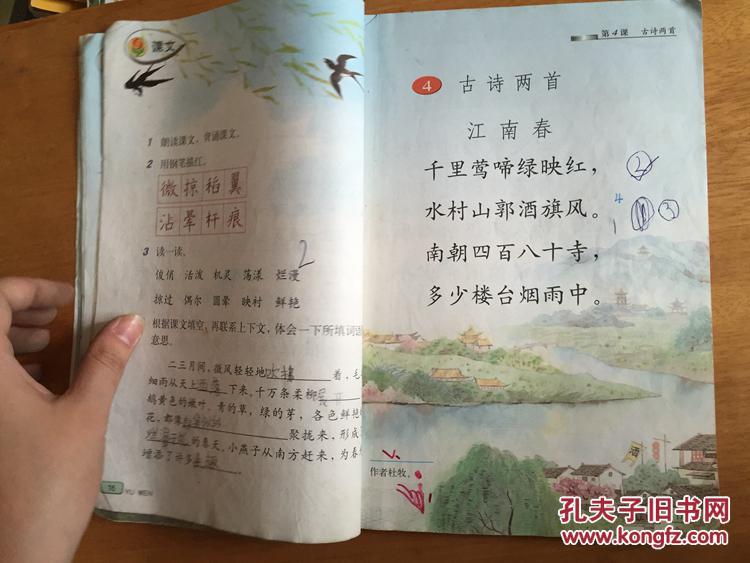 课文
1 朗读课文，背诵课文。
2 用钢笔描红。
微掠稻翼
沾晕杆痕
3 读一读。
2
俊俏 活泼 机灵 荡漾 烂漫
掠过 偶尔 圆晕 映衬 鲜艳
根据课文填空，再联系上下文，体会一下所填词语
意思。
二三月间，微风轻轻地吹拂着，毛
细雨从天上洒落下来，千万条柔柳
鹅黄色的嫩叶。青的草，绿的芽，各色鲜艳
花，都像 聚拢来，形成
的春天。小燕子从南方赶来，为春
增添了许多
16
YU WEN
第4课 古诗两首
4 古诗两首
江南春
千里莺啼绿映红，
2
水村山郭酒旗风。
4
1
3
南朝四百八十寺，
多少楼台烟雨中。
作者杜牧。
酒
孔夫子旧书网
www.kongfz.com